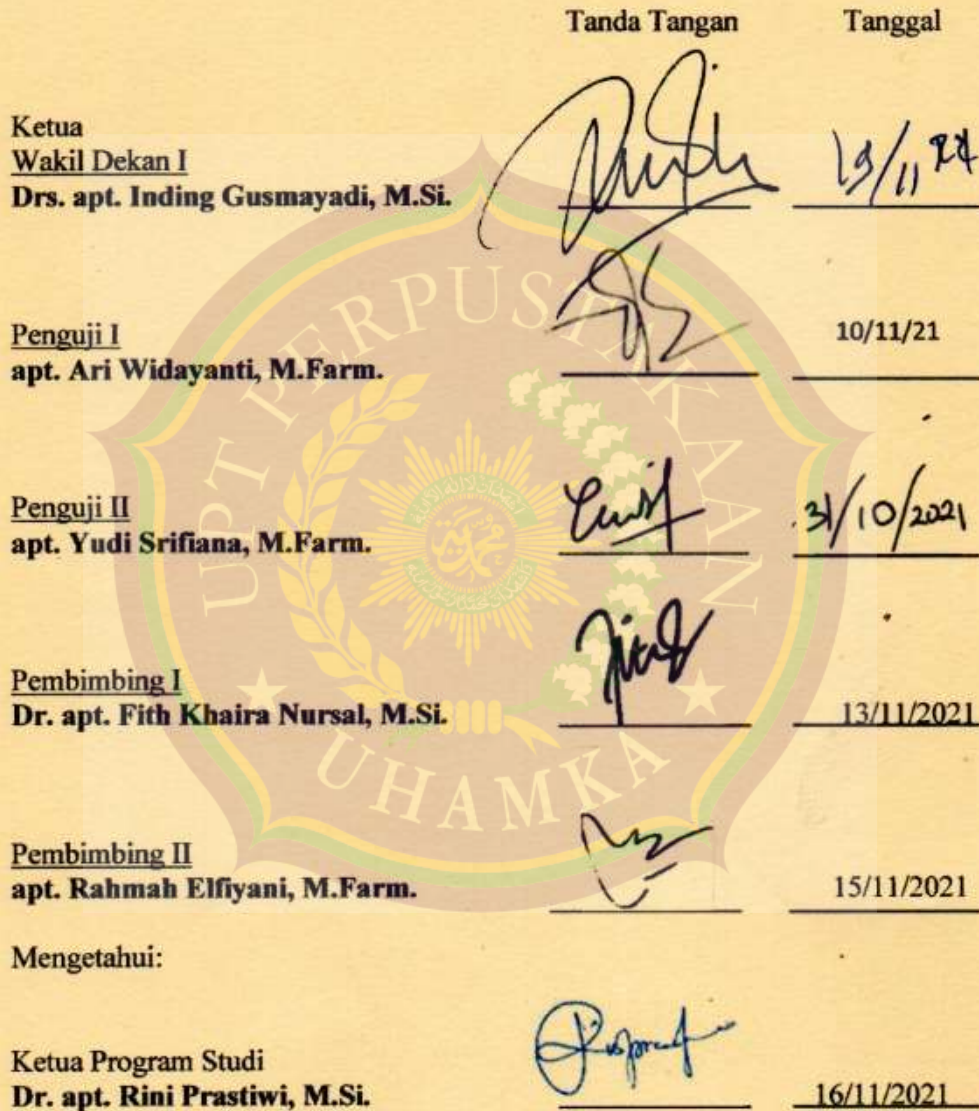 Tanda Tangan Tanggal
Ketua
Wakil Dekan I
Drs. apt. Inding Gusmayadi, M.Si.
Penguji I
apt. Ari Widayanti, M.Farm.
10/11/21
Penguji II
apt. Yudi Srifiana, M.Farm.
31/10/2021
Pembimbing I
Dr. apt. Fith Khaira Nursal, M.Si.
13/11/2021
Pembimbing II
apt. Rahmah Elfiyani, M.Farm.
15/11/2021
Mengetahui:
Ketua Program Studi
Dr. apt. Rini Prastiwi, M.Si.
16/11/2021
UPT PERPUSTAKAAN
UHAMKA